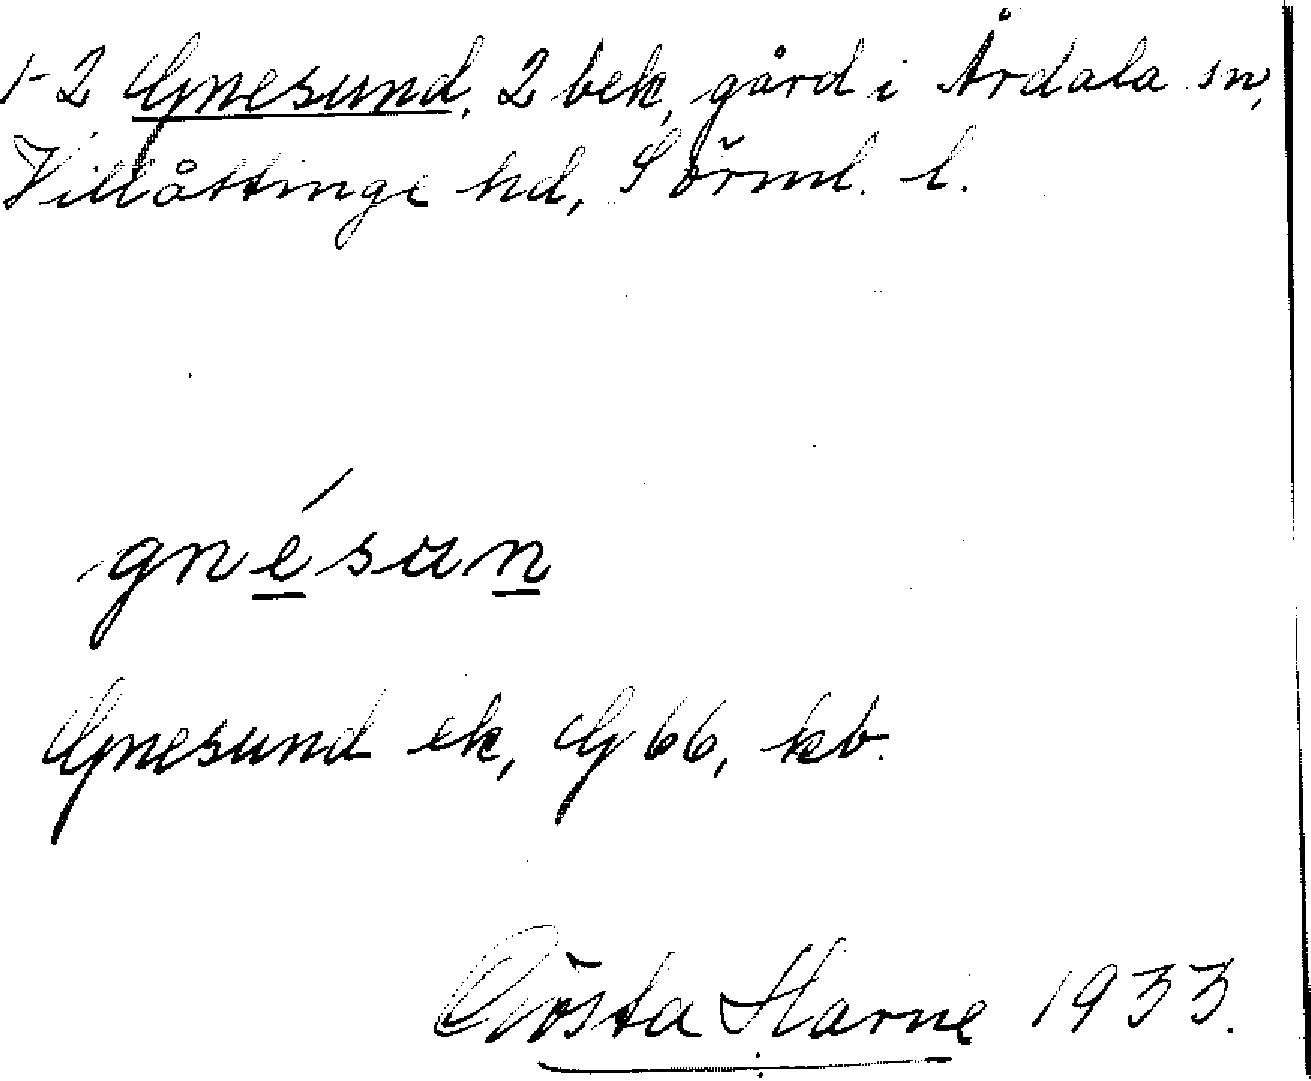 1-2 Gnesund, 2 bek, gård i Årdala sn,
Villåttinge hd, Sörml. l.
gnésun
Gnesund ek, G 66, kb.
Gösta Harne 1933.